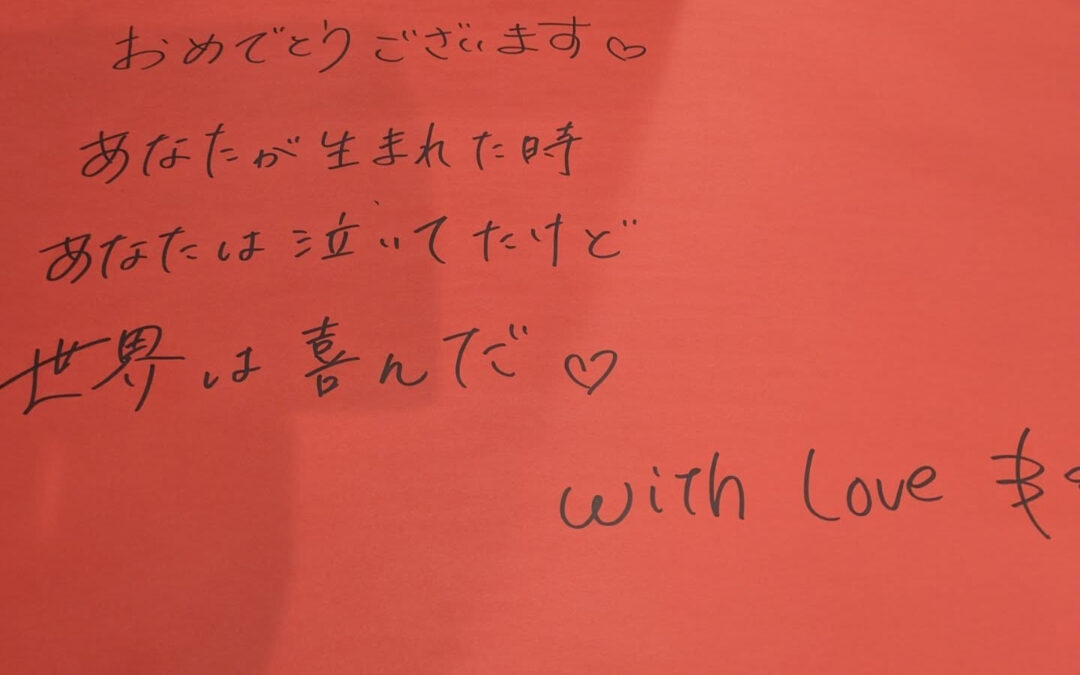 おめでとうございます♡
あなたが生まれた時
あなたは泣いてたけど
世界は喜んだ♡
with Love